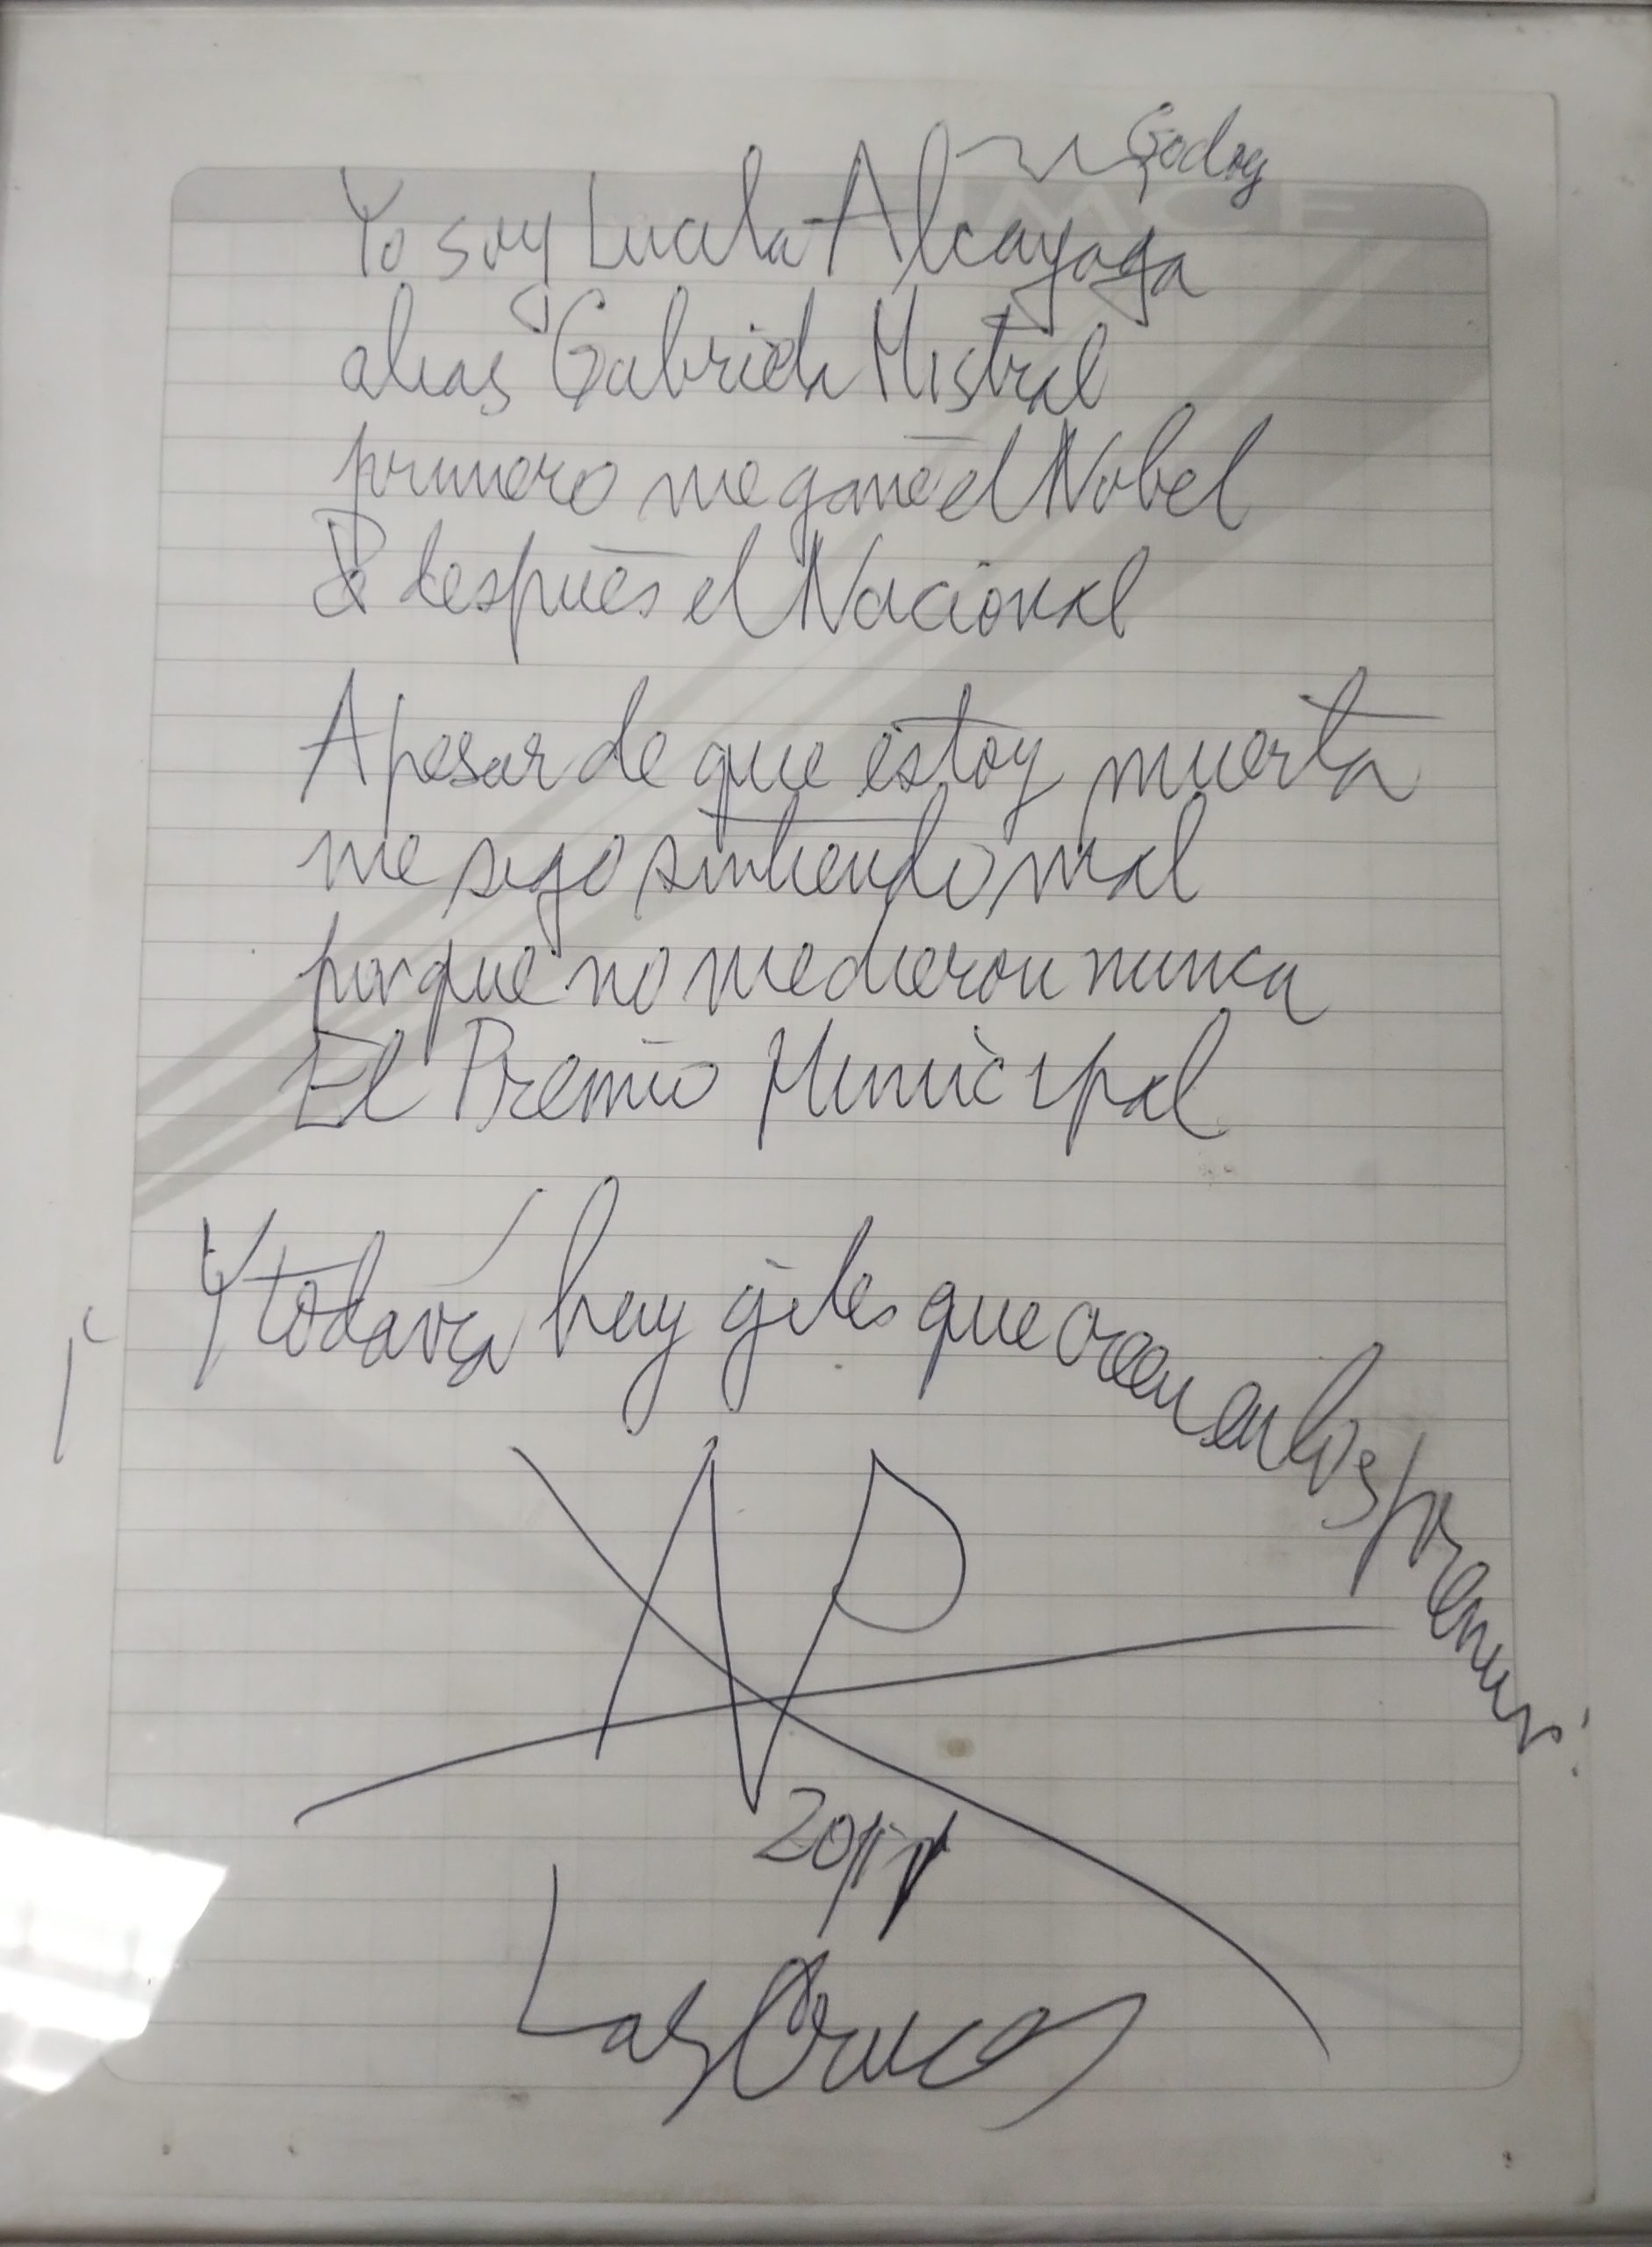 Godoy
Yo soy Lucila Alcayaga
alias Gabriela Mistral
primero me gané el Nobel
& después el Nacional
A pesar de que estoy muerta
me sigo sintiendo mal
porque no me dieron nunca
El Premio Municipal
¡Y todavía hay giles que creen en los premios!
NP
Las Cruces
MCE